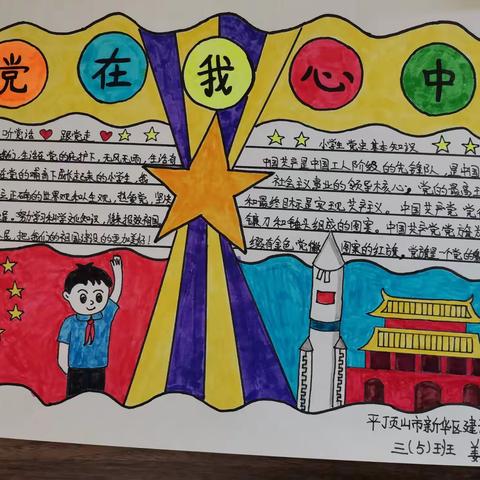 党在我心中
听党话 跟党走
我们生活在党的呵护下,无风无雨,生活着
在党的哺育下成长起来的小学生,要
立正确的世界观和人生观,热爱党,坚决
努力学习科学文化知识,将来报效祖国
民,把我们的祖国建设的更加美好!
小学生党史基本知识
中国共产是中国工人阶级的先锋队,是中国
社会主义事业的领导核心。党的最高理
和最终目标是实现共产主义。中国共产党党
镰刀和锤头组成的图案。中国共产党党旗
缀有金色党徽图案的红旗。党旗是一个党的
平顶山市新华区建
三(5)班 姜